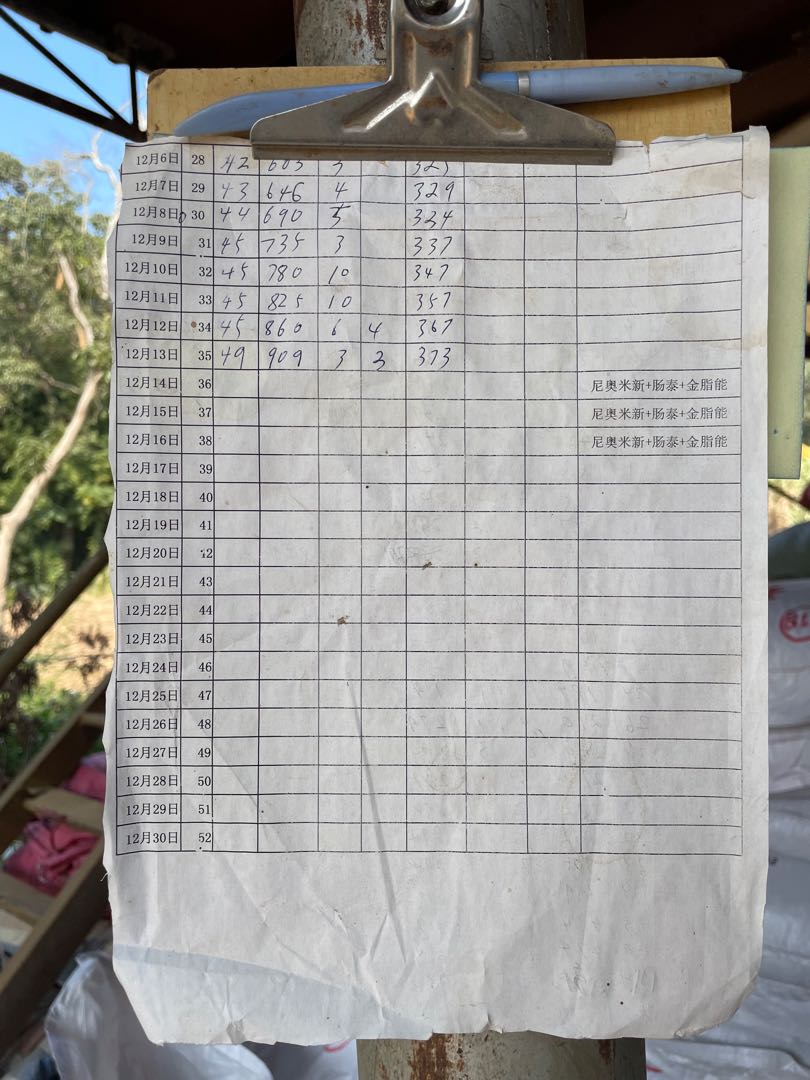 12月6日 28 42 603 3 325
12月7日 29 43 646 4 329
12月8日 30 44 690 5 334
12月9日 31 45 735 3 337
12月10日 32 45 780 10 347
12月11日 33 45 825 10 357
12月12日 34 45 860 6 4 367
12月13日 35 49 909 3 3 373
12月14日 36 尼奥米新+肠泰+金脂能
12月15日 37 尼奥米新+肠泰+金脂能
12月16日 38 尼奥米新+肠泰+金脂能
12月17日 39
12月18日 40
12月19日 41
12月20日 42
12月21日 43
12月22日 44
12月23日 45
12月24日 46
12月25日 47
12月26日 48
12月27日 49
12月28日 50
12月29日 51
12月30日 52